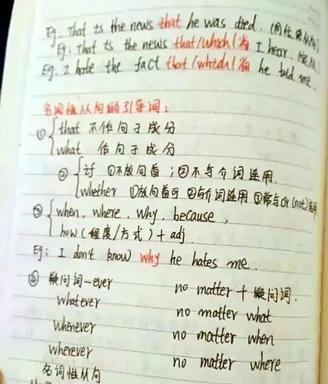 Eg. That is the news that he was died. (同位语从句)
Eg: That is the news that/which/省 I hear.
Eg: I hate the fact that/which/省 he told me.
名词性从句的引导词:
① that 不作句子成分
what 作句子成分
② if ①不放句首;②不与介词连用
whether ①放句首可 ②与介词连用 ③常与or (not)连用
③ when, where, why, because,
how (程度/方式) + adj
Eg: I don't know why he hates me.
④ 疑问词-ever no matter + 疑问词.
whatever no matter what
whenever no matter when
wherever no matter where
名词性从句